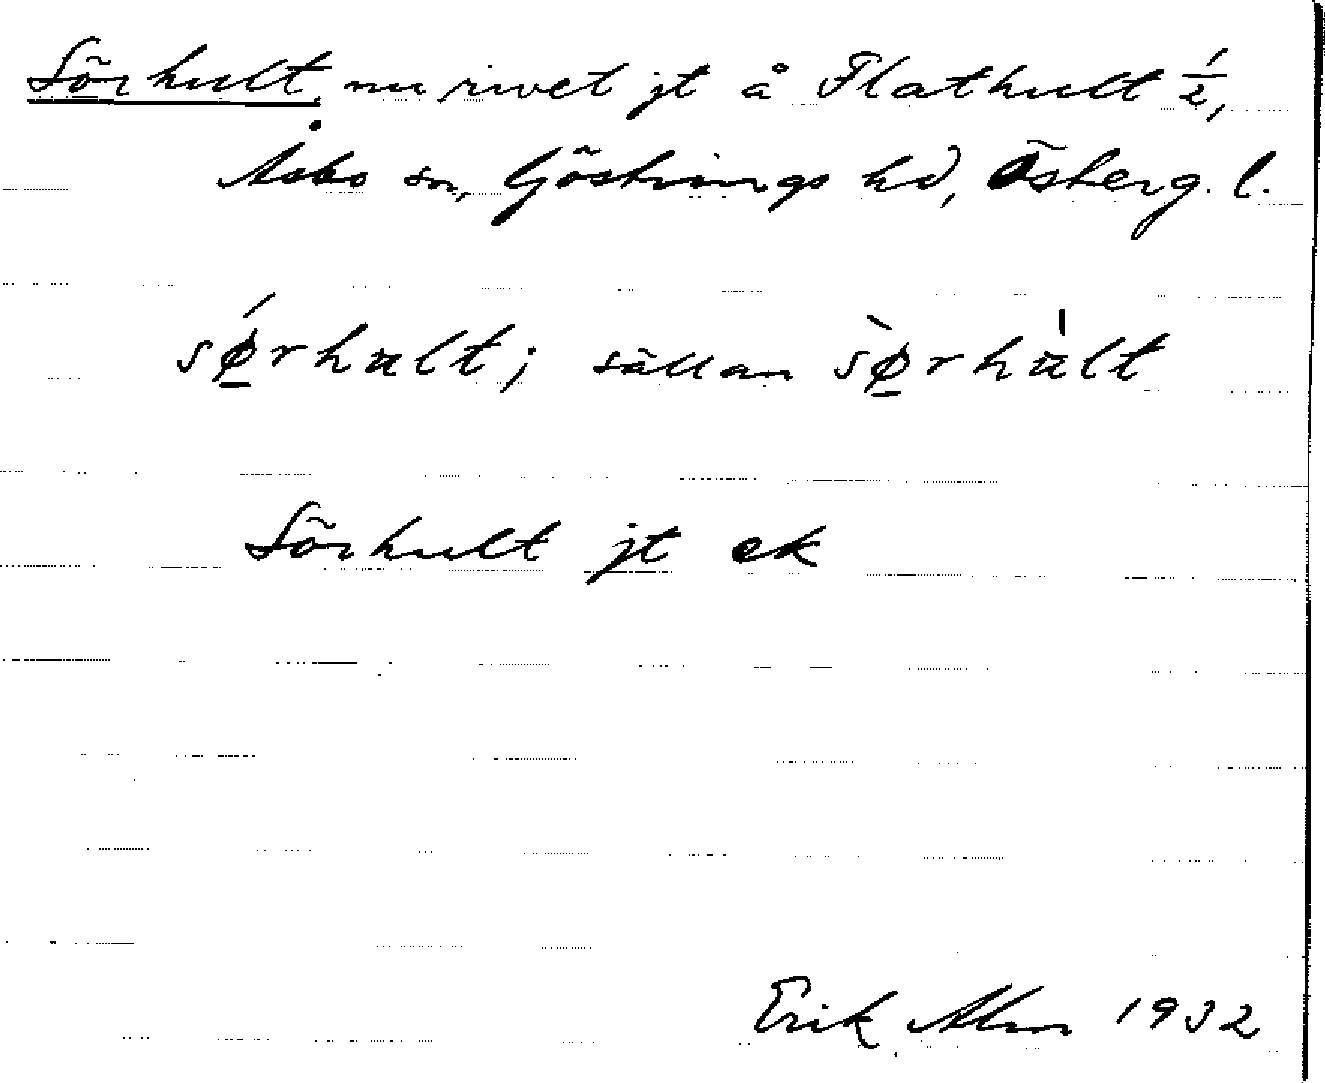 Sörhult, nu rivet jt å Flathult 1/2,
Åsbo sn, Göstrings hd, Österg. l.
sǿ̱rhult; sällan sø̱̀rhu̍lt
Sörhult jt ek
Erik Alm 1932